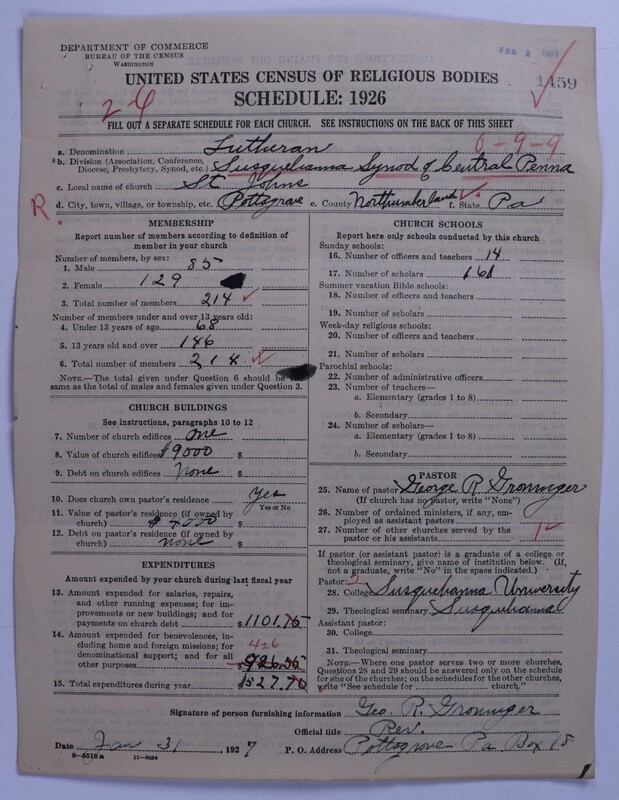 DEPARTMENT OF COMMERCE
BUREAU OF THE CENSUS
WASHINGTON
FEB 2
1459
UNITED STATES CENSUS OF RELIGIOUS BODIES
SCHEDULE: 1926
26
FILL OUT A SEPARATE SCHEDULE FOR EACH CHURCH. SEE INSTRUCTIONS ON THE BACK OF THIS SHEET
6-9-9
a. Denomination Lutheran
*b. Division (Association, Conference, Diocese, Presbytery, Synod, etc.) Susquehanna Synod of Central Penna
c. Local name of church St Johns
R. d. City, town, village, or township, etc. Pottsgrove e. County Northumberland f. State Pa
MEMBERSHIP
Report number of members according to definition of
member in your church
Number of members, by sex:
1. Male 85
2. Female 129
3. Total number of members 214
Number of members under and over 13 years old:
4. Under 13 years of age 68
5. 13 years old and over 146
6. Total number of members 214
NOTE.—The total given under Question 6 should be
same as the total of males and females given under Question 3.
CHURCH BUILDINGS
See instructions, paragraphs 10 to 12
7. Number of church edifices one
8. Value of church edifices $9000 $
9. Debt on church edifices None $
10. Does church own pastor's residence Yes
Yes or No
11. Value of pastor's residence (if owned by
church) $4000 $
12. Debt on pastor's residence (if owned by
church) none $
EXPENDITURES
Amount expended by your church during last fiscal year
13. Amount expended for salaries, repairs,
and other running expenses; for im-
provements or new buildings; and for
payments on church debt $1101.75
14. Amount expended for benevolences, in-
cluding home and foreign missions; for
denominational support; and for all
other purposes 426
15. Total expenditures during year $1527.70
CHURCH SCHOOLS
Report here only schools conducted by this church
Sunday schools:
16. Number of officers and teachers 14
17. Number of scholars 161
Summer vacation Bible schools:
18. Number of officers and teachers
19. Number of scholars
Week-day religious schools:
20. Number of officers and teachers
21. Number of scholars
Parochial schools:
22. Number of administrative officers
23. Number of teachers—
a. Elementary (grades 1 to 8)
b. Secondary
24. Number of scholars—
a. Elementary (grades 1 to 8)
b. Secondary
PASTOR
25. Name of pastor George R Groninger
(If church has no pastor, write "None")
26. Number of ordained ministers, if any, em-
ployed as assistant pastors
27. Number of other churches served by the
pastor or his assistants 1
If pastor (or assistant pastor) is a graduate of a college or
theological seminary, give name of institution below. (If,
not a graduate, write "No" in the space indicated.)
Pastor: 2
28. College Susquehanna University
29. Theological seminary Susquehanna
Assistant pastor:
30. College
31. Theological seminary
NOTE.—Where one pastor serves two or more churches,
Questions 28 and 29 should be answered only on the schedule
for one of the churches; on the schedules for the other churches,
write "See schedule for church."
Signature of person furnishing information Geo. R. Groninger
Official title Rev.
Date Jan 31, 1927 P. O. Address Pottsgrove Pa Box 18
8-5518a 11-9054